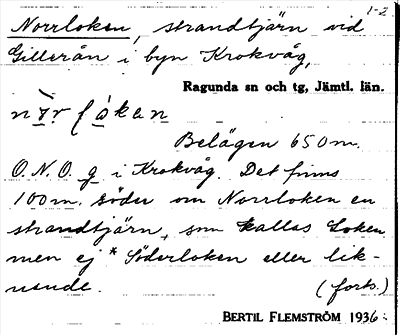 1-2
Norrloken, strandtjärn vid
Gillerån i byn Krokvåg,
Ragunda sn och tg, Jämtl. län.
Belägen 650 m.
O.N.O. g i Krokvåg. Det finns
100 m. söder om Norrloken en
strandtjärn, som kallas Loken
men ej *Söderloken eller lik-
nande. (forts.)
BERTIL FLEMSTRÖM 1936.